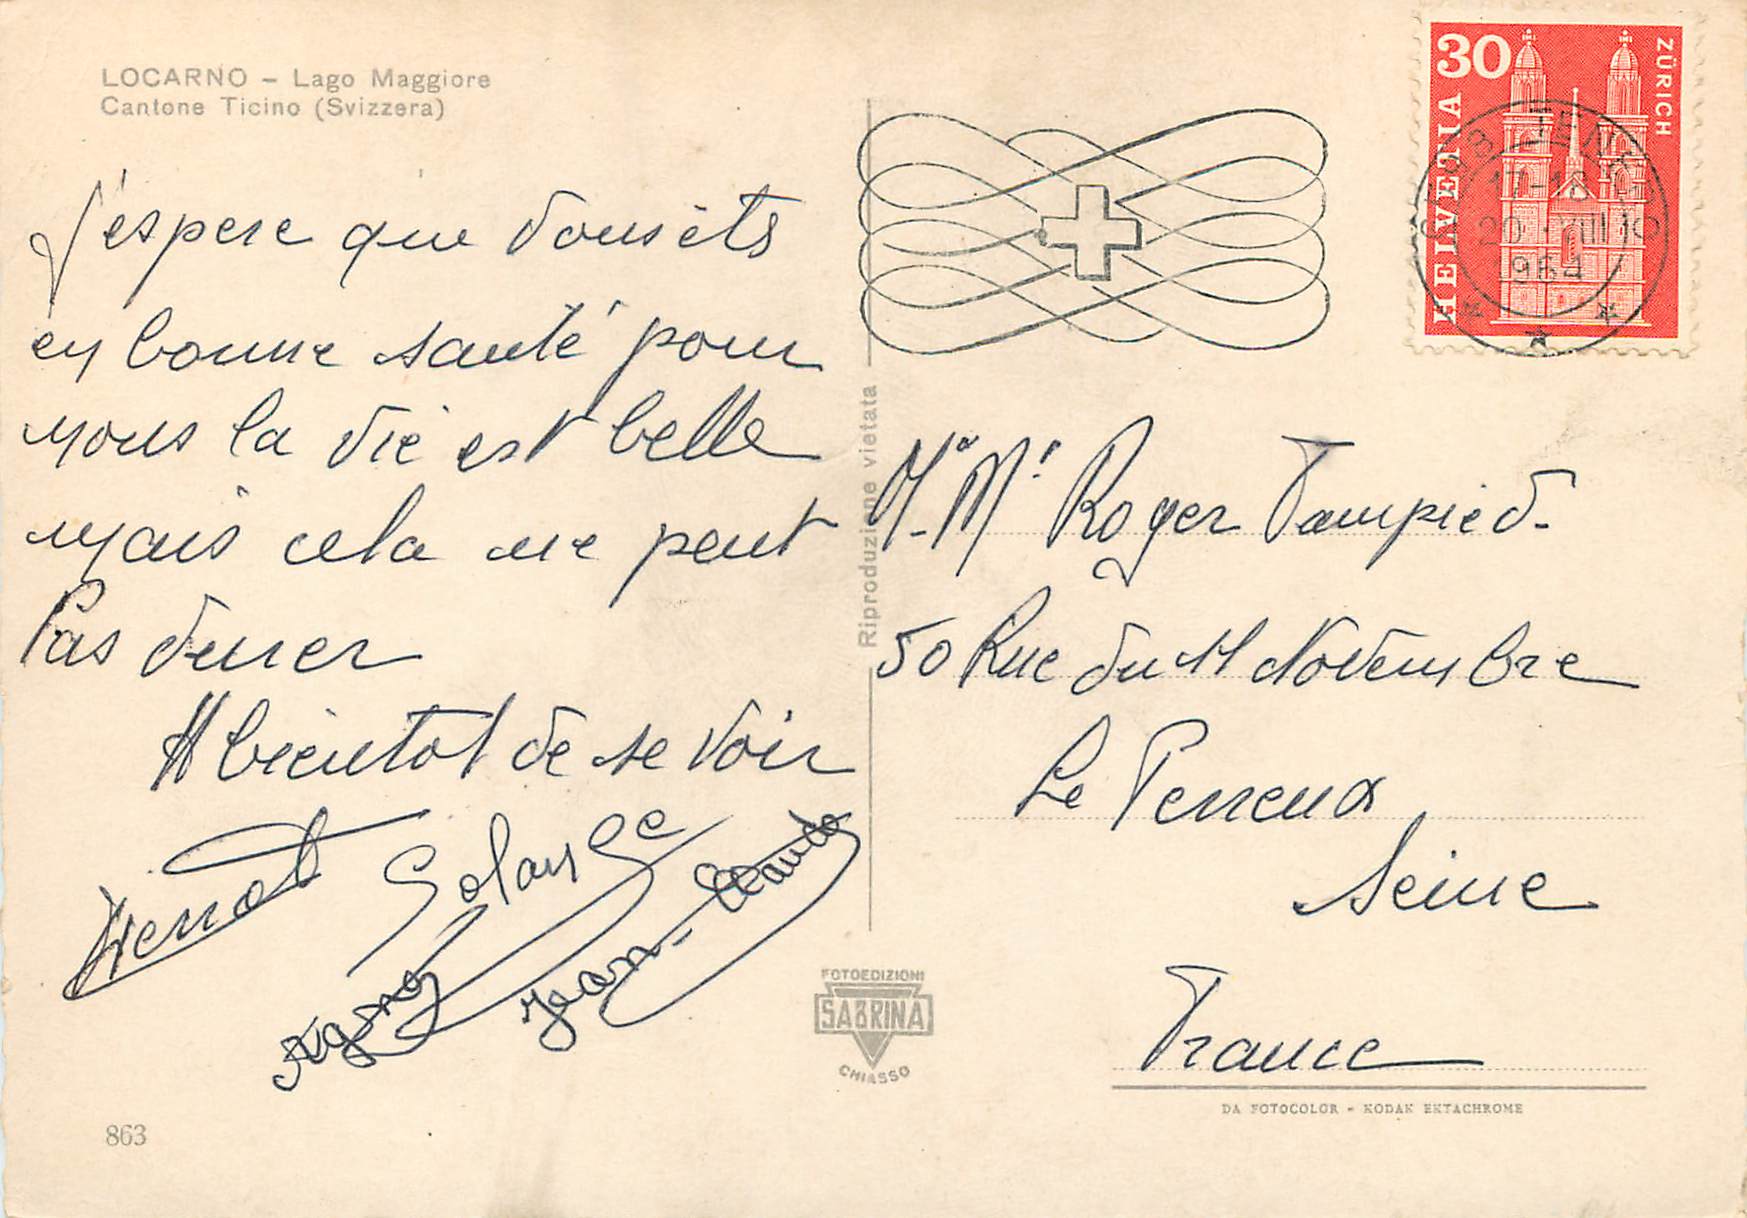 LOCARNO – Lago Maggiore
Cantone Ticino (Svizzera)
j'espere que vous ets
en bonne santé pour
nous la vie est belle
mais cela ne peut
Pas durer
A bientot de se voir
Solange
Jean-Claude
863
Riproduzione vietata
FOTOEDIZIONI
SABRINA
CHIASSO
30
HELVETIA
ZÜRICH
6598 TENERO
17-18
20. VIII
1964
Mr Mr Roger Tampied
50 Rue du 11 Novembre
Le Perreux
Seine
France
DA FOTOCOLOR - KODAK EKTACHROME